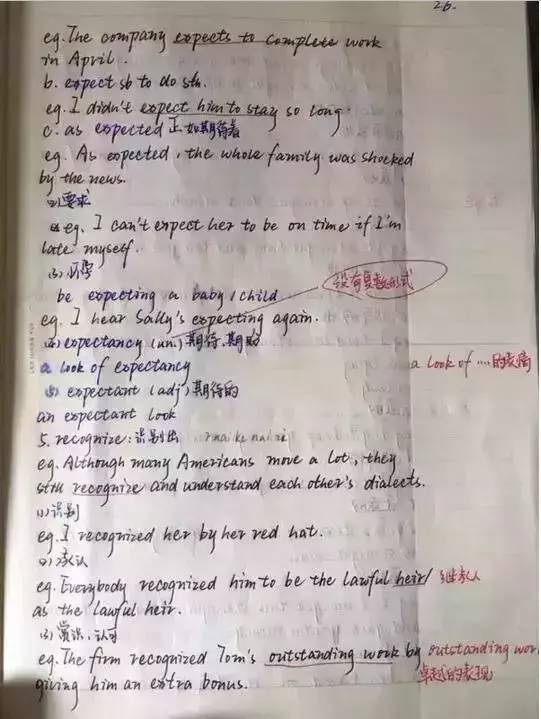 26.
eg. The company expects to complete work
in April.
b. expect sb to do sth.
eg. I didn't expect him to stay so long.
c. as expected 正如期待着
eg. As expected, the whole family was shocked
by the news.
(2)要求
eg. I can't expect her to be on time if I'm
late myself.
(3)怀孕
没有复数形式
be expecting a baby / child
eg. I hear Sally's expecting again.
(4) expectancy (un.) 期待、期盼
a look of expectancy
a look of .... 的表情
(5) expectant (adj.) 期待的
an expectant look
5. recognize: 识别出
eg. Although many Americans move a lot, they
still recognize and understand each other's dialects.
(1)识别
eg. I recognized her by her red hat.
(2)承认
eg. Everybody recognized him to be the lawful heir/ 继承人
as the lawful heir.
(3)赏识、认可
eg. The firm recognized Tom's outstanding work by outstanding wor
giving him an extra bonus. 卓越的表现